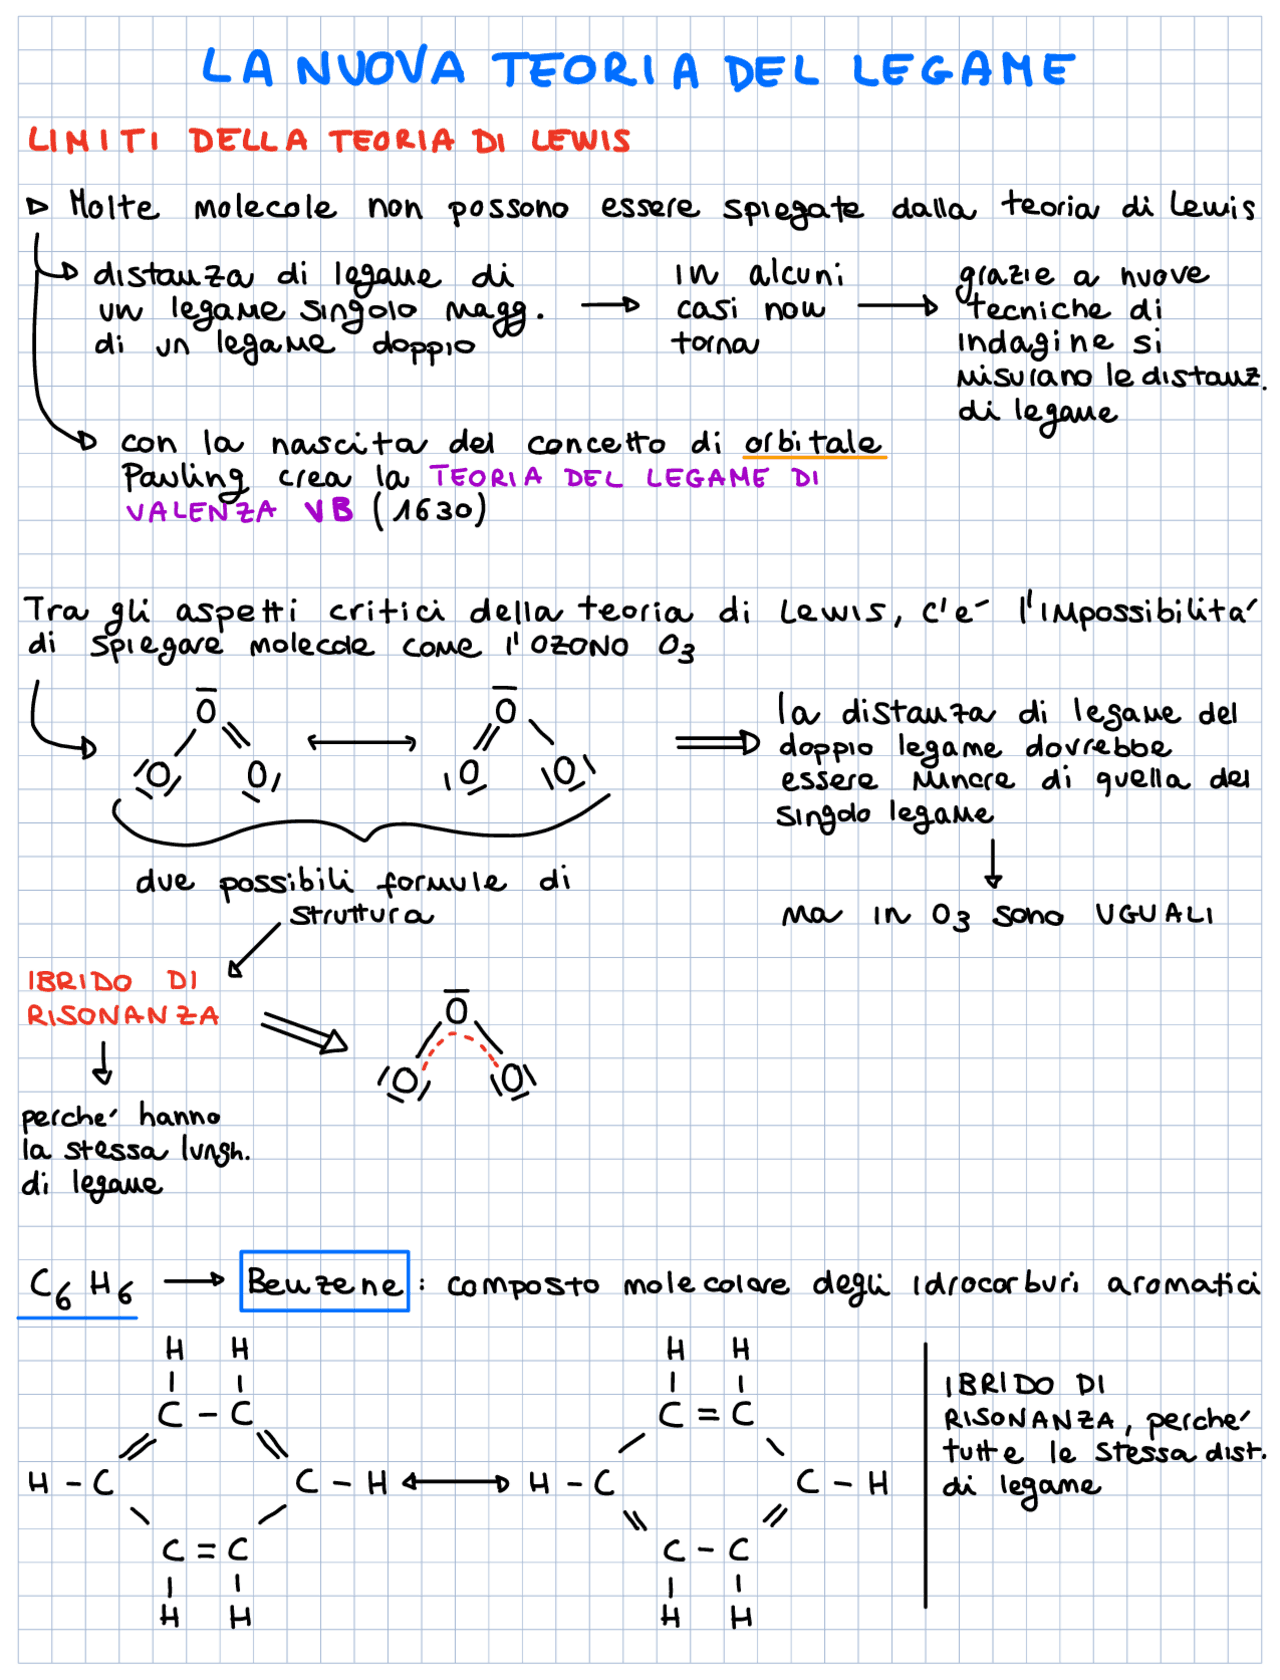 LA NUOVA TEORIA DEL LEGAME
LIMITI DELLA TEORIA DI LEWIS
Molte molecole non possono essere spiegate dalla teoria di Lewis
distanza di legame di
un legame singolo magg.
di un legame doppio
in alcuni
casi non
torna
grazie a nuove
tecniche di
indagine si
misurano le distanz.
di legame
con la nascita del concetto di orbitale
Pauling crea la TEORIA DEL LEGAME DI
VALENZA VB (1630)
Tra gli aspetti critici della teoria di Lewis, c'é l'impossibilitá
di spiegare molecole come l'OZONO O3
O O
O O O O
la distanza di legame del
doppio legame dovrebbe
essere minore di quella del
singolo legame
due possibili formule di
struttura
ma in O3 sono UGUALI
IBRIDO DI
RISONANZA
O
O O
perché hanno
la stessa lungh.
di legame
C6 H6 → Benzene : composto molecolare degli idrocarburi aromatici
H H
C - C
H - C C - H
C = C
H H
H H
C = C
H - C C - H
C - C
H H
IBRIDO DI
RISONANZA, perché
tutte le stessa dist.
di legame